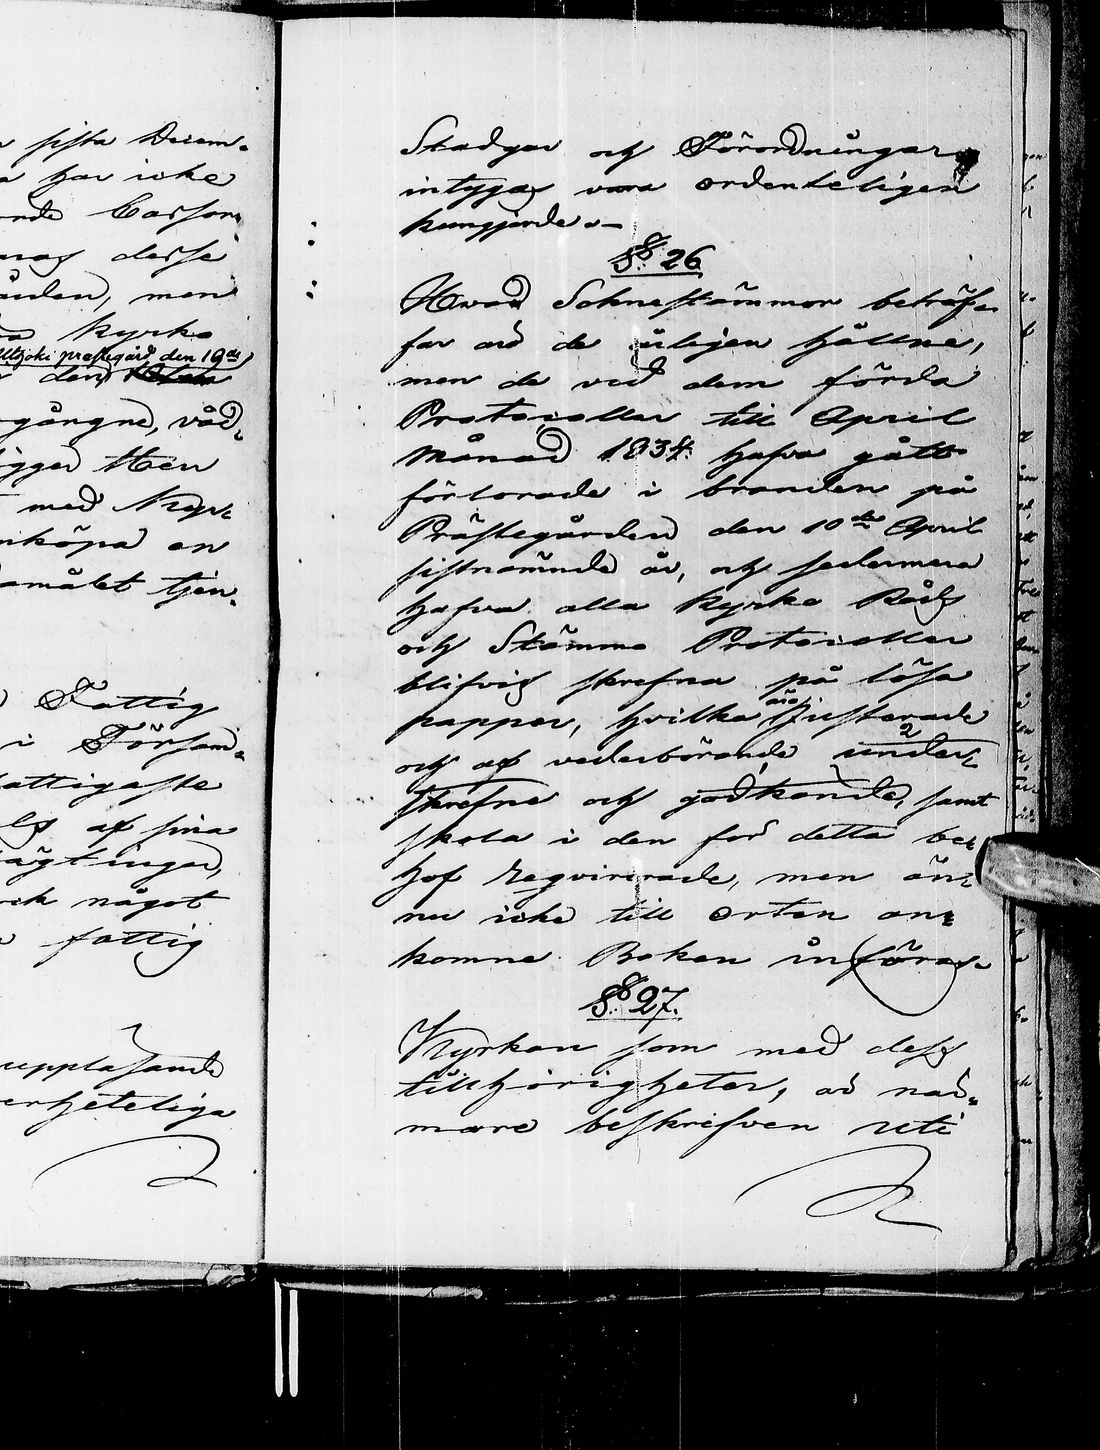 sista Decem-
har icke
ande Cassor
dessa
ården, men
Kyrko
Utsjoki prestegård den 19de
den
gångne, våd-
bygger Men
med Kyr-
inköpa en
damålet tjen-
Fattig
i Försam-
fattigaste
af sina
något
fattig
uppläsande
erheteliga
Stadgar och Förordningar
intygas vara ordenteligen
kungjorde.—
§ 26
Hvad Soknestämmor beträf-
far äro de årligen hållne,
men de vid dem förda
Protocoller till April
Månad 1834 hafva gått
förlorade i branden på
Prästegården den 10de April
sistnämnde år, och sedermera
hafva alla Kyrko Råds
och Stämmo Protocoller
blifvit skrefna på lösa
papper, hvilka äro Justerade
och af vederbörande under-
skrefne och godkände, samt
skola i den for detta be-
hof reqvirerade, men än-
nu icke till orten an-
komne Boken införas.
§ 27.
Kyrkan som med dess
tillhörigheter, är när-
mare beskrefven uti